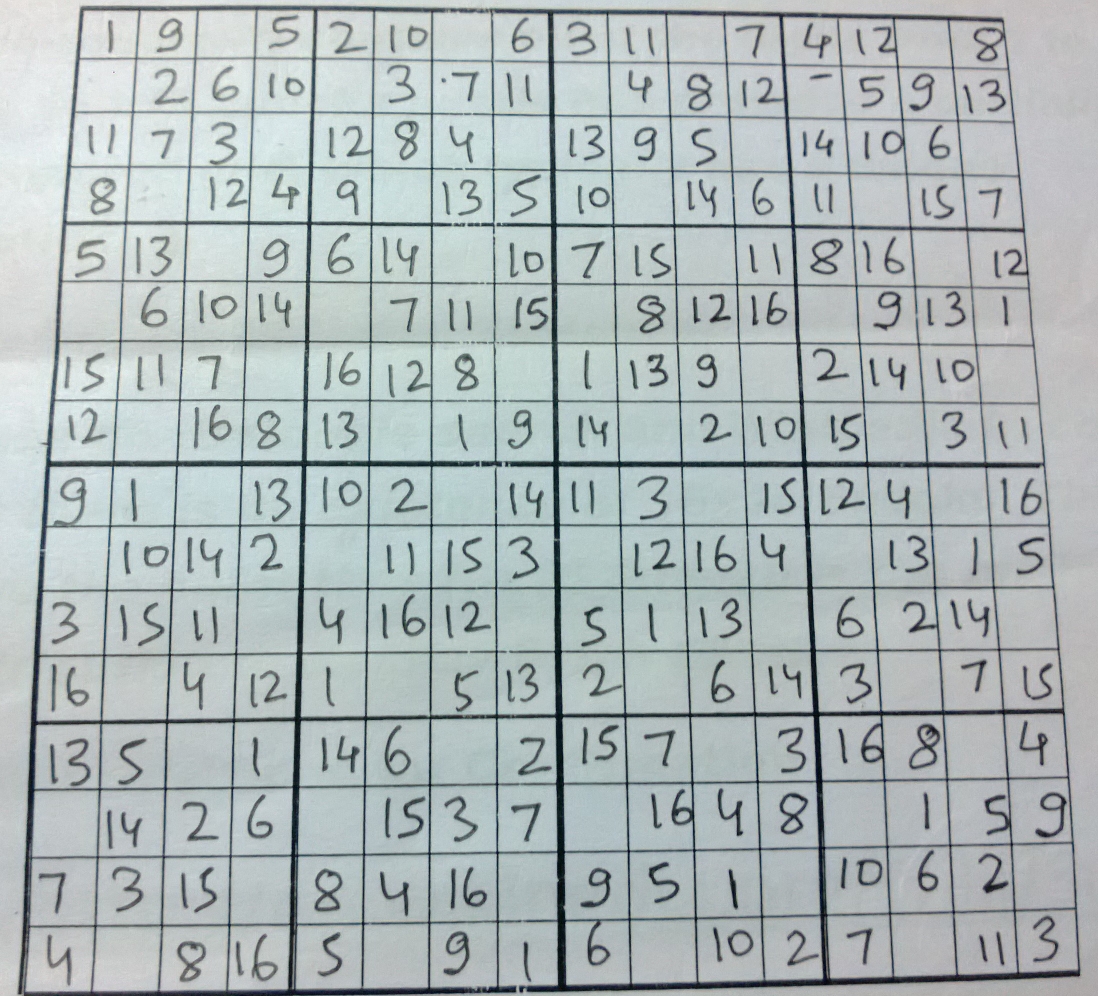 1 9 5 2 10 6 3 11 7 4 12 8
2 6 10 3 7 11 4 8 12 - 5 9 13
11 7 3 12 8 4 13 9 5 14 10 6
8 12 4 9 13 5 10 14 6 11 15 7
5 13 9 6 14 10 7 15 11 8 16 12
6 10 14 7 11 15 8 12 16 9 13 1
15 11 7 16 12 8 1 13 9 2 14 10
12 16 8 13 1 9 14 2 10 15 3 11
9 1 13 10 2 14 11 3 15 12 4 16
10 14 2 11 15 3 12 16 4 13 1 5
3 15 11 4 16 12 5 1 13 6 2 14
16 4 12 1 5 13 2 6 14 3 7 15
13 5 1 14 6 2 15 7 3 16 8 4
14 2 6 15 3 7 16 4 8 1 5 9
7 3 15 8 4 16 9 5 1 10 6 2
4 8 16 5 9 1 6 10 2 7 11 3